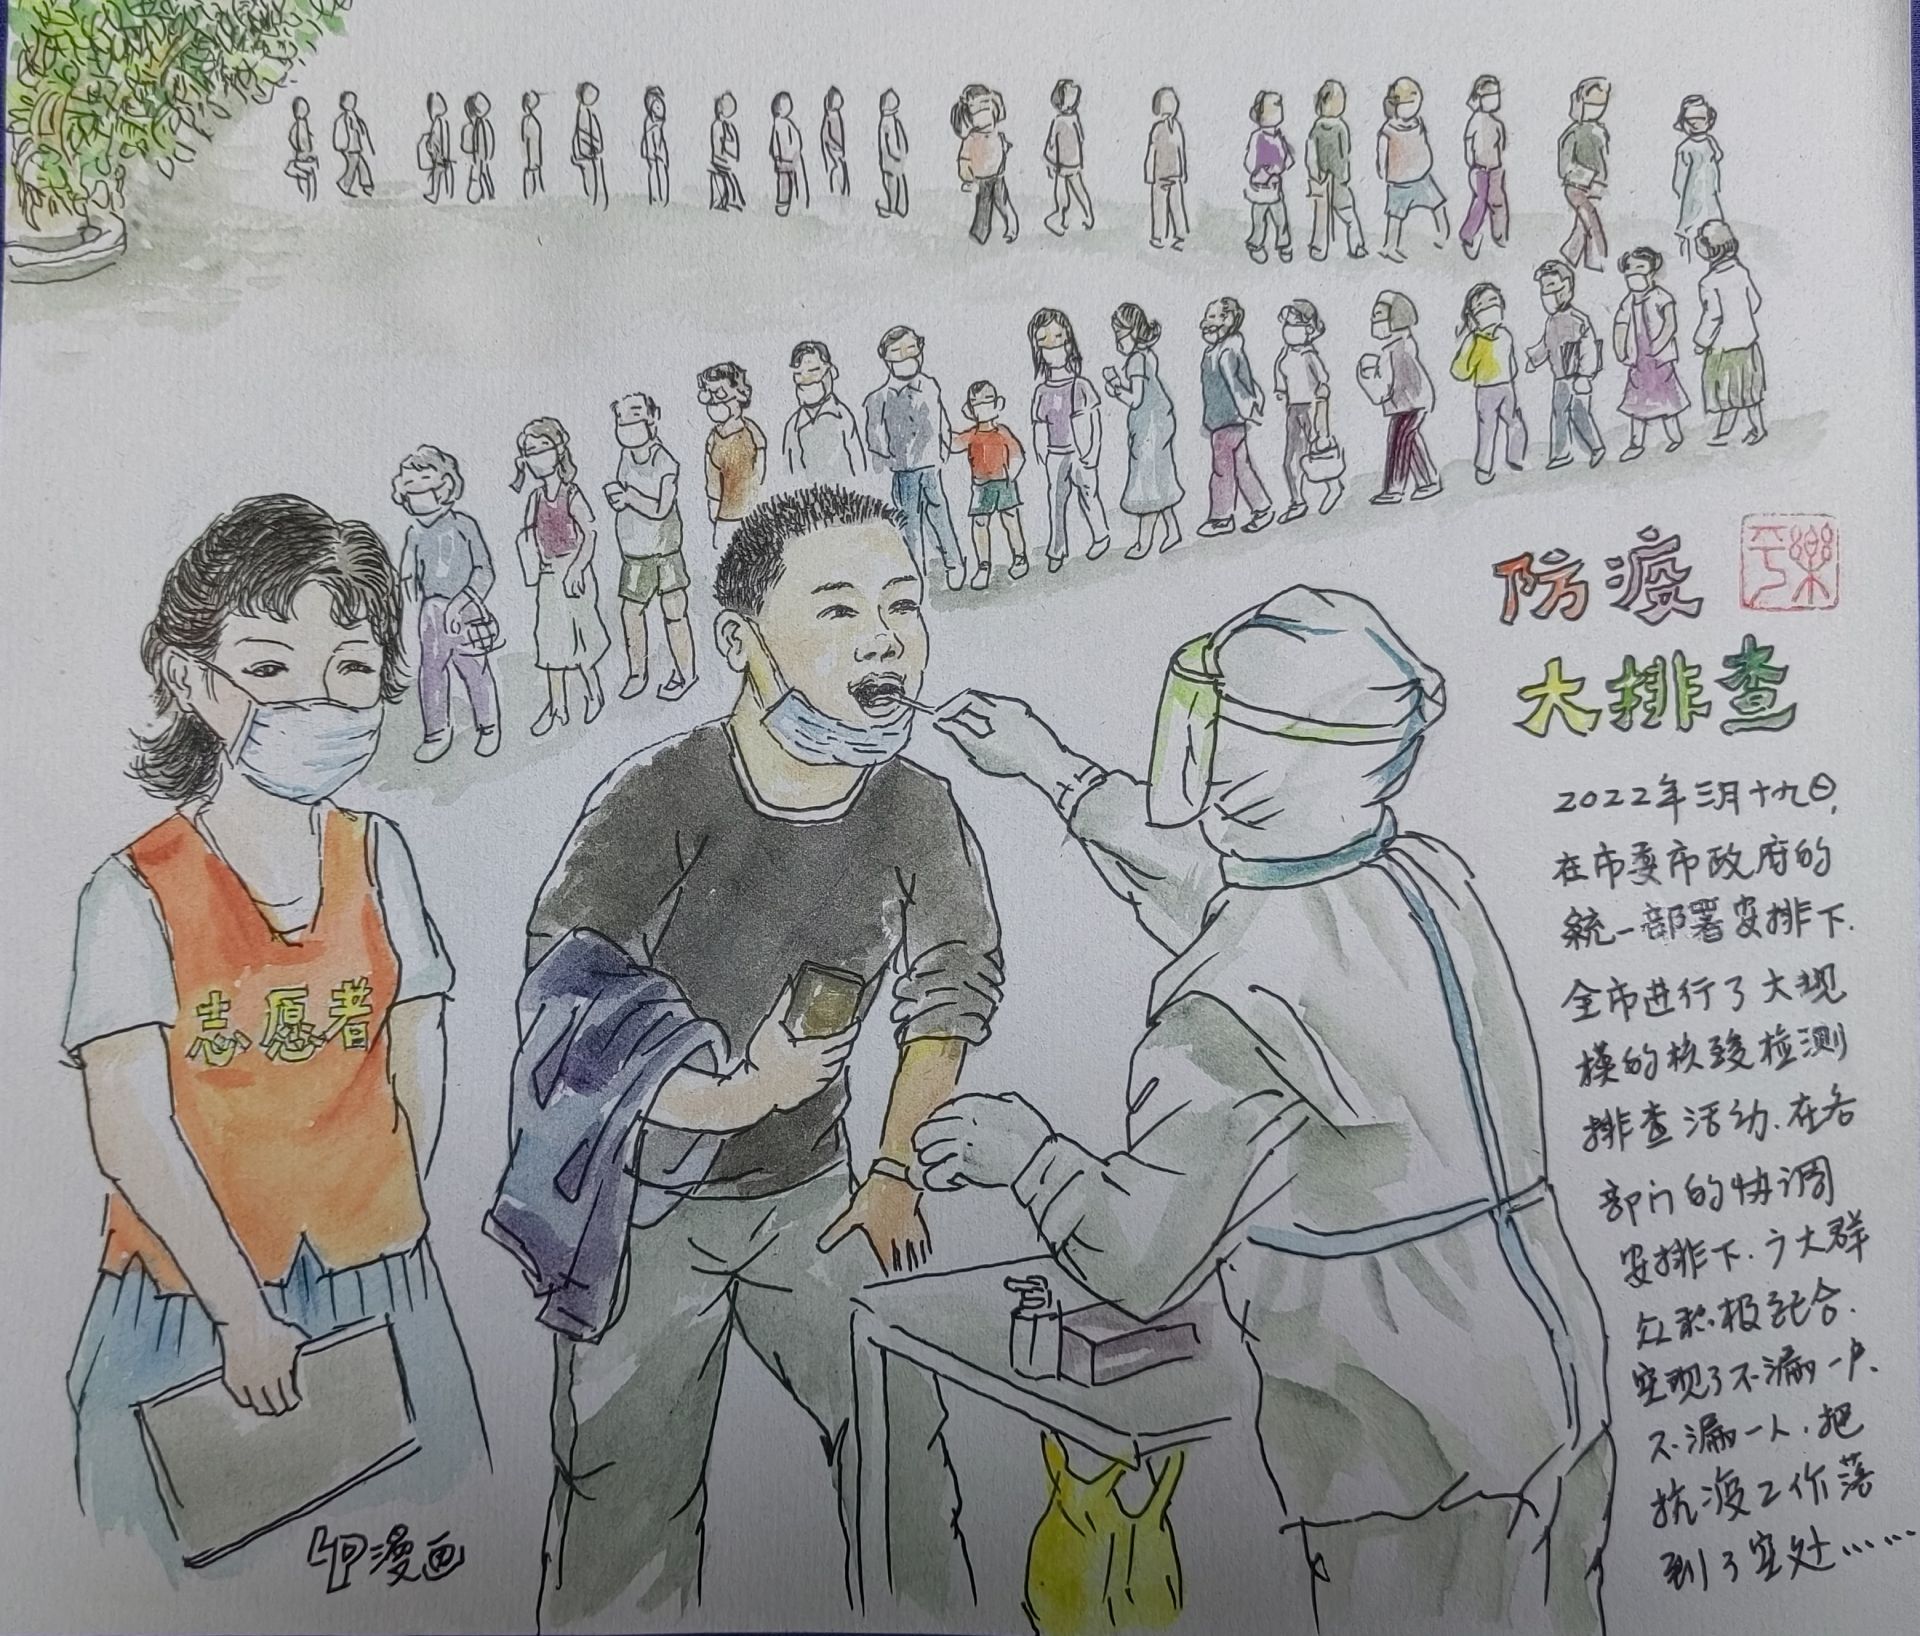 防疫
大排查
2022年三月十九日,
在市委市政府的
统一部署安排下.
全市进行了大规
模的核酸检测
排查活动.在各
部门的协调
安排下.广大群
众积极配合.
实现了不漏一户.
不漏一人.把
抗疫工作落
到了实处……
志愿者
漫画